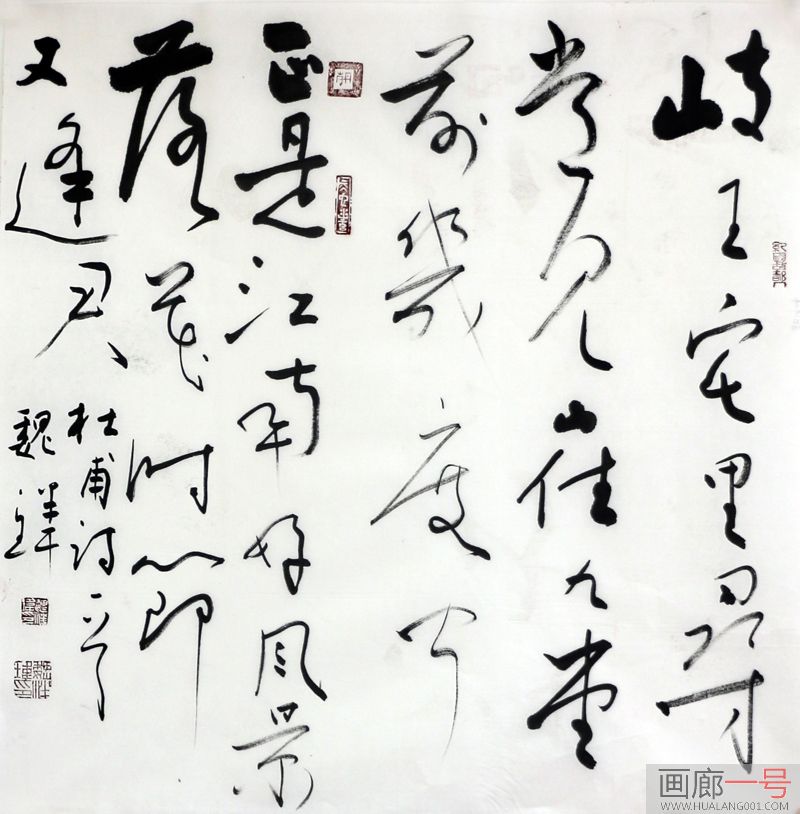 岐王宅里尋
常見崔九堂
前幾度聞
正是江南好風景
落花時節
又逢君
杜甫詩一首
魏
画廊一号
WWW.HUALANG001.COM